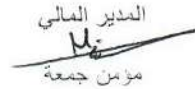 المدير المالي
مؤمن جمعة